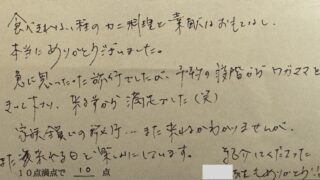 食べきれない程のカニ料理と素敵なおもてなし、
本当にありがとうございました。
急に思いたった旅行でしたが、予約の段階からワガママと
きいて頂き、来る前から満足でした(笑)
家族全員いの旅行…また来れるかわかりませんが、
また来れる日を楽しみにしています。
10点満点で 10 点
紹介してくださった
もありがとう!